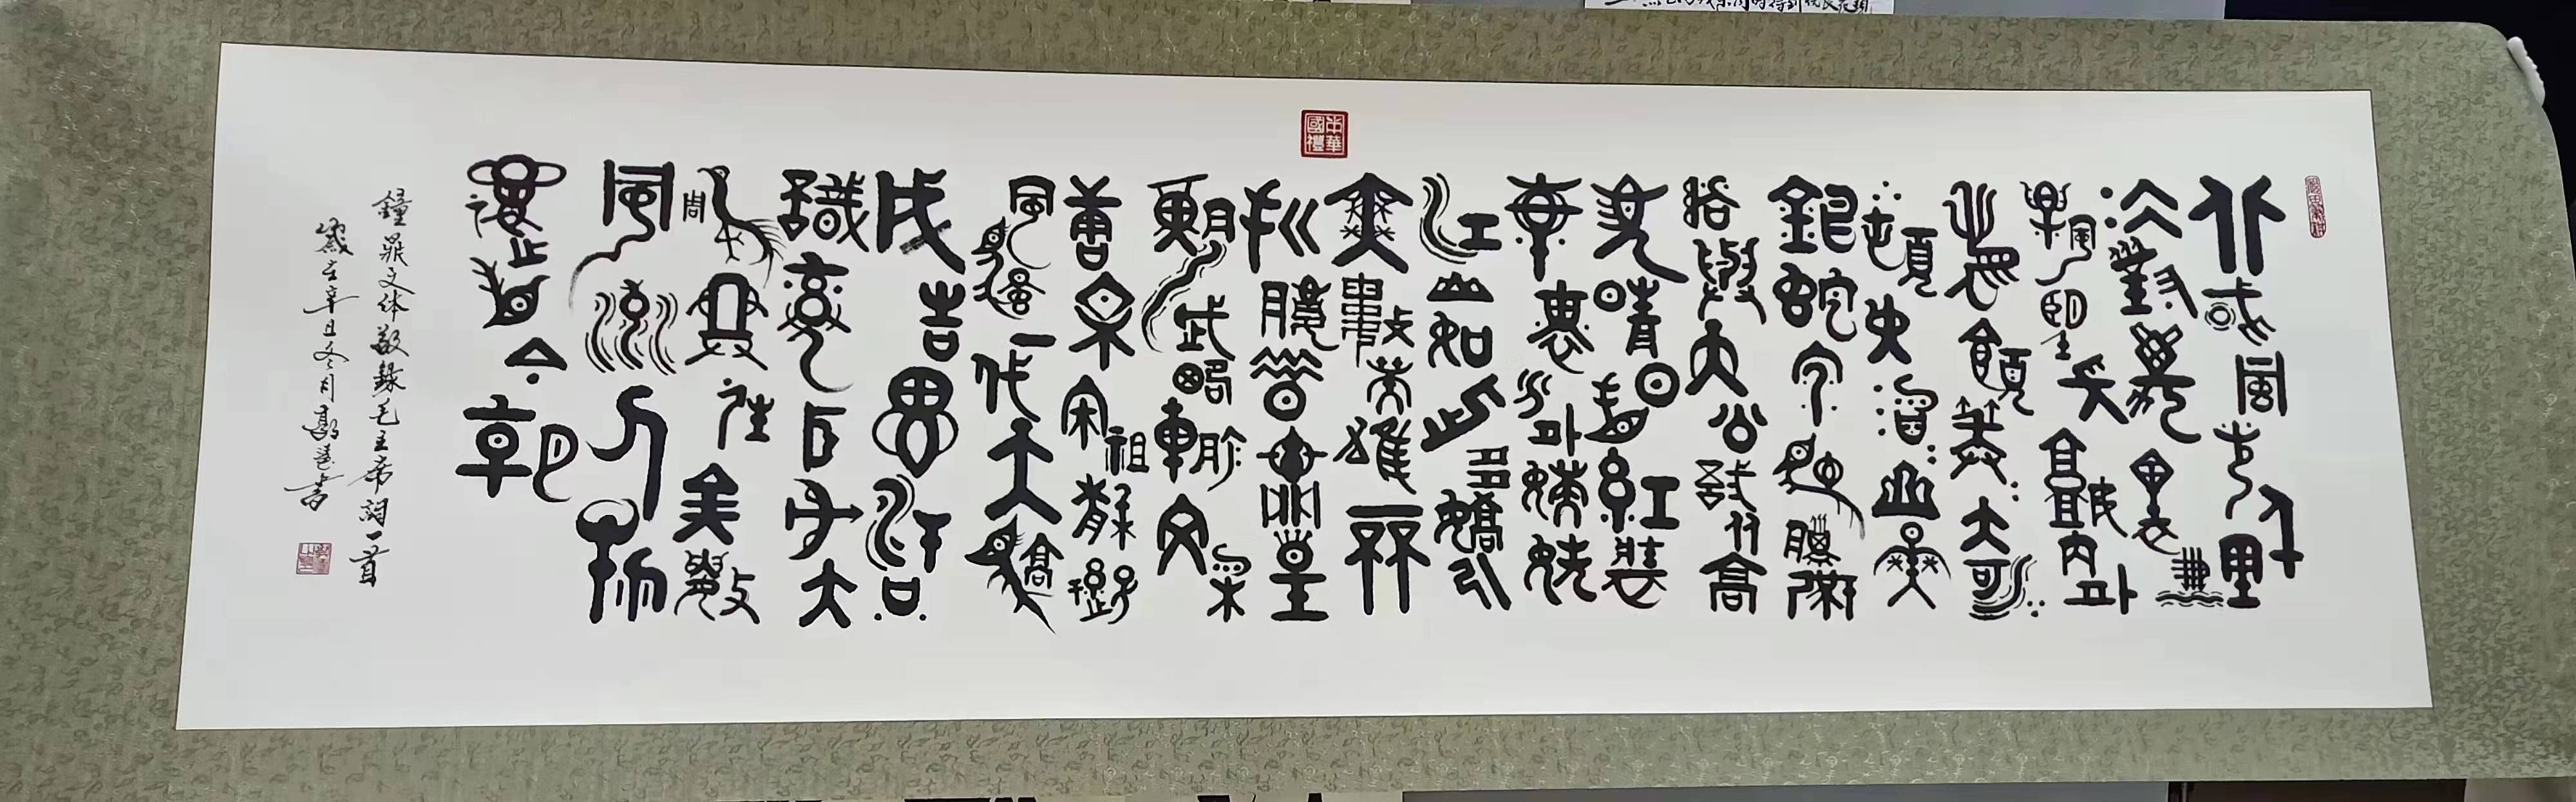 北國風光千里
冰封萬里雪
飄望長城內外
惟餘莽莽大河
上下頓失滔滔山舞
銀蛇原馳臘象
欲與天公試比高
須晴日看紅裝
素裹分外妖嬈
江山如此多嬌引
無數英雄競
折腰惜秦皇
漢武略輸文采
唐宗宋祖稍遜
風騷一代天驕
成吉思汗只
識彎弓射大
雕俱往矣數
風流人物
還看今朝
鐘鼎文体敬錄毛主席詞一首
歲在辛丑冬月 書
中華國禮